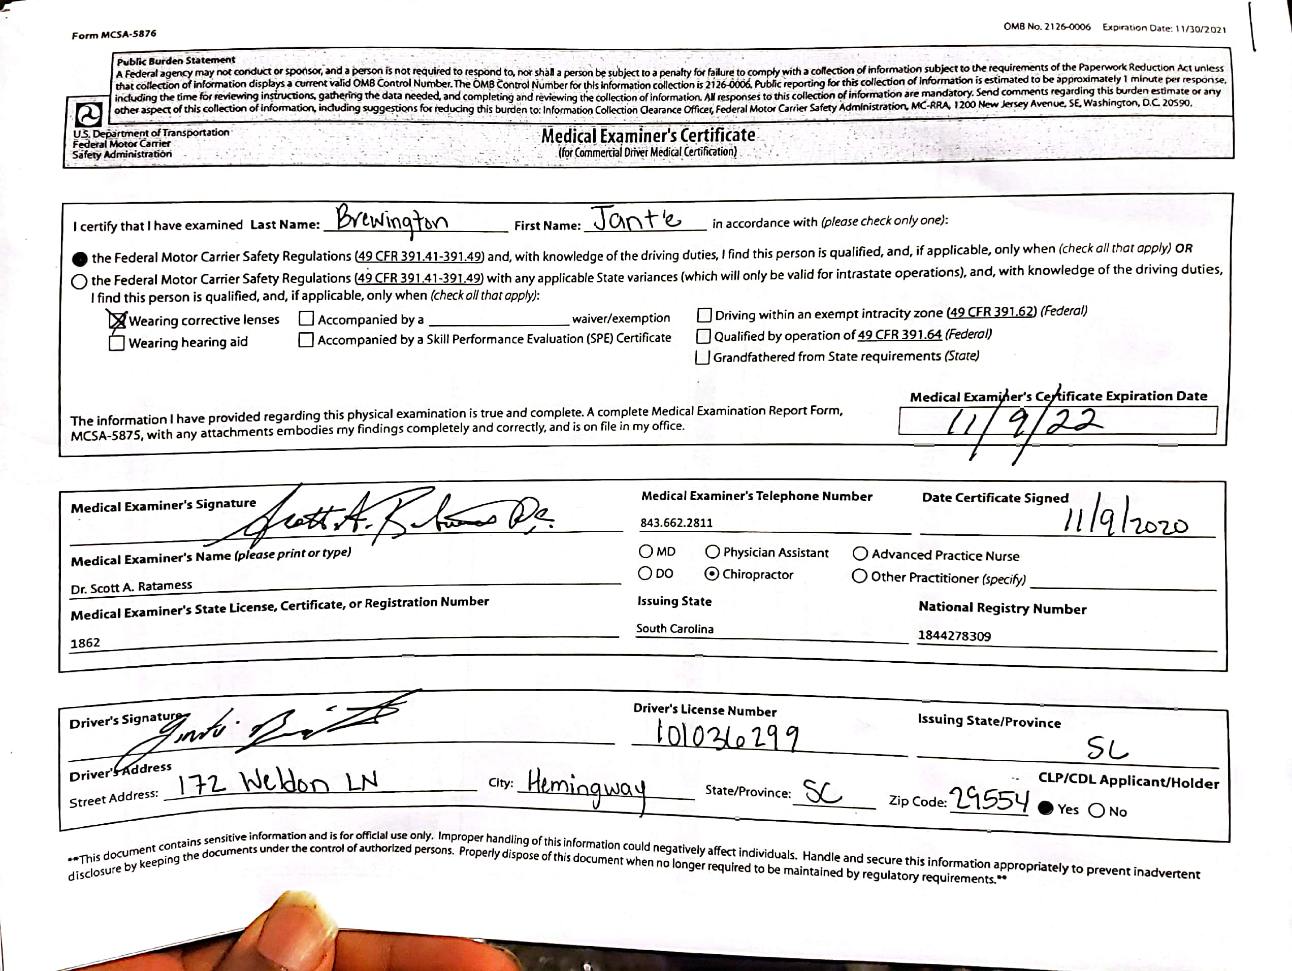 Form MCSA-5876
OMB No. 2126-0006 Expiration Date: 11/30/2021
Public Burden Statement
A Federal agency may not conduct or sponsor, and a person is not required to respond to, nor shall a person be subject to a penalty for failure to comply with a collection of information subject to the requirements of the Paperwork Reduction Act unless
that collection of information displays a current valid OMB Control Number. The OMB Control Number for this information collection is 2126-0006. Public reporting for this collection of information is estimated to be approximately 1 minute per response,
including the time for reviewing instructions, gathering the data needed, and completing and reviewing the collection of information. All responses to this collection of information are mandatory. Send comments regarding this burden estimate or any
other aspect of this collection of information, including suggestions for reducing this burden to: Information Collection Clearance Officer, Federal Motor Carrier Safety Administration, MC-RRA, 1200 New Jersey Avenue, SE, Washington, D.C. 20590.
U.S. Department of Transportation
Federal Motor Carrier
Safety Administration
Medical Examiner's Certificate
(for Commercial Driver Medical Certification)
I certify that I have examined Last Name: Brewington First Name: Jante in accordance with (please check only one):
the Federal Motor Carrier Safety Regulations (49 CFR 391.41-391.49) and, with knowledge of the driving duties, I find this person is qualified, and, if applicable, only when (check all that apply) OR
the Federal Motor Carrier Safety Regulations (49 CFR 391.41-391.49) with any applicable State variances (which will only be valid for intrastate operations), and, with knowledge of the driving duties,
I find this person is qualified, and, if applicable, only when (check all that apply):
Wearing corrective lenses Accompanied by a waiver/exemption Driving within an exempt intracity zone (49 CFR 391.62) (Federal)
Wearing hearing aid Accompanied by a Skill Performance Evaluation (SPE) Certificate Qualified by operation of 49 CFR 391.64 (Federal)
Grandfathered from State requirements (State)
The information I have provided regarding this physical examination is true and complete. A complete Medical Examination Report Form,
MCSA-5875, with any attachments embodies my findings completely and correctly, and is on file in my office.
Medical Examiner's Certificate Expiration Date
11/9/22
Medical Examiner's Signature Medical Examiner's Telephone Number Date Certificate Signed
843.662.2811 11/9/2020
Medical Examiner's Name (please print or type) MD Physician Assistant Advanced Practice Nurse
Dr. Scott A. Ratamess DO Chiropractor Other Practitioner (specify)
Medical Examiner's State License, Certificate, or Registration Number Issuing State National Registry Number
1862 South Carolina 1844278309
Driver's Signature Driver's License Number Issuing State/Province
101036299 SC
Driver's Address CLP/CDL Applicant/Holder
Street Address: 172 Weldon LN City: Hemingway State/Province: SC Zip Code: 29554 Yes No
**This document contains sensitive information and is for official use only. Improper handling of this information could negatively affect individuals. Handle and secure this information appropriately to prevent inadvertent
disclosure by keeping the documents under the control of authorized persons. Properly dispose of this document when no longer required to be maintained by regulatory requirements.**